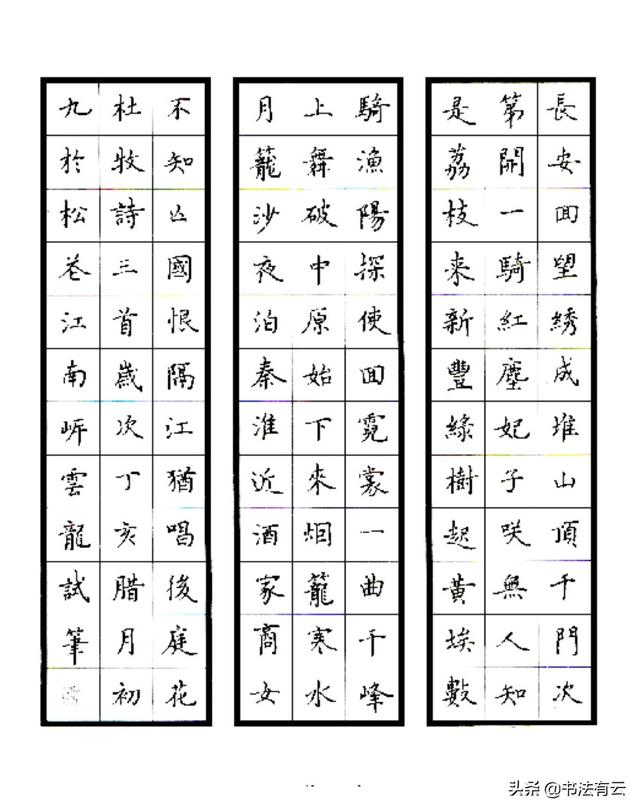 長安囬望綉成堆山頂千門次
第開一騎紅塵妃子咲無人知
是荔枝来新豐綠樹起黃埃數
騎漁陽探使囬霓裳一曲千峰
上舞破中原始下來烟籠寒水
月籠沙夜泊秦淮近酒家商女
不知亾國恨隔江猶唱後庭花
杜牧詩三首歲次丁亥腊月初
九於松巷江南岍雲龍試筆
头条 @书法有云